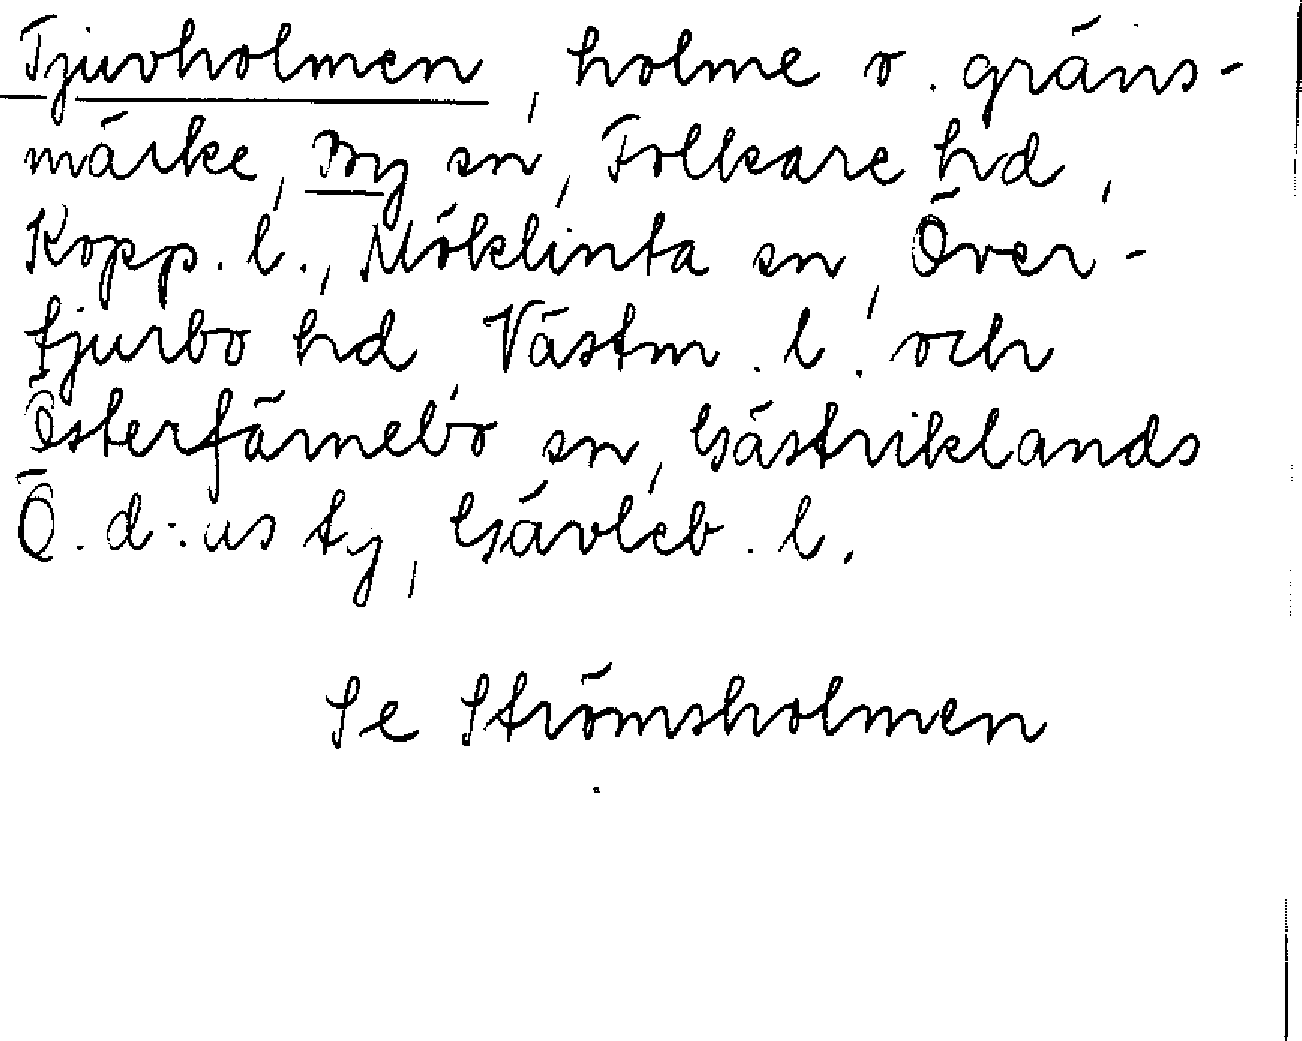 Tjuvholmen, holme o. gräns-
märke, By sn, Folkare hd,
Kopp. l., Möklinta sn, Över-
tjurbo hd, Västm. l. och
Österfärnebo sn, Gästriklands
Ö. d:us ty, Gävleb. l.
Se Strömsholmen